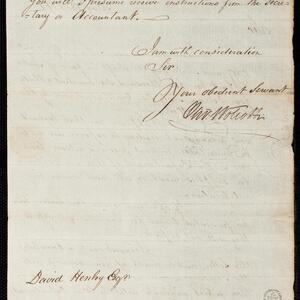 you will I presume receive instructions from the Secre-
-tary or Accountant.
I am with consideration
Sir
Your obedient Servant
Oliv Wolcott
David Henley Esqr